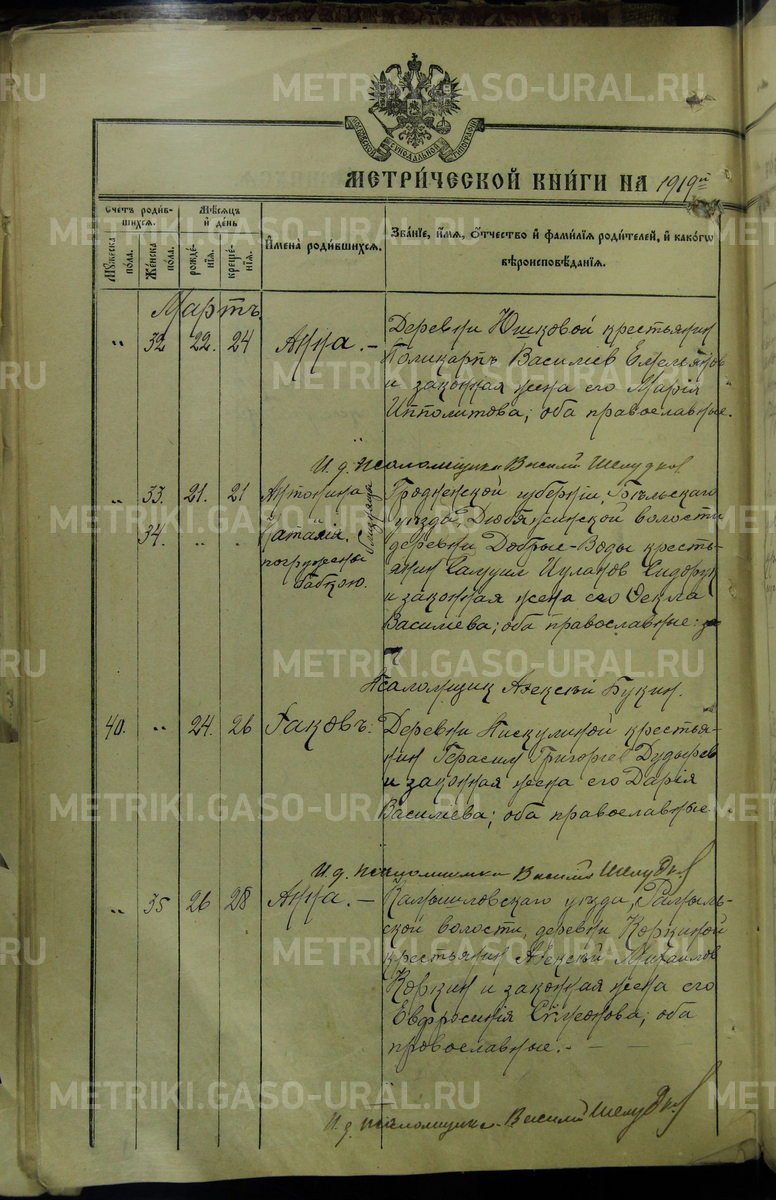 METRIKI.GASO-URAL.RU
МЕТРИ́ЧЕСКОЙ КНИ́ГИ НА 1919й
Счетъ роди́в-
шихся.
Му́жеска
по́ла.
Же́нска
по́ла.
Мѣ́сяцъ
и де́нь
рожде́-
нїя.
креще́-
нїя.
И҆мена̀ роди́вшихся.
Зва́нїе, и҆́мя, ѻ҆́тчество и҆ фами́лїя роди́телей, и҆ како́гѡ
вѣроисповѣ́данїя.
Мартъ
" 32 22. 24 Анна. –
Деревни Юшковой крестьянин
Поликарпъ Василiев Емельянов
и законная жена его Марiя
Ипполитова; оба православные.
И. д. псаломщика Василiй Шелудков
" 33. 21. 21 Антонина
34. " " Наталiя.
близнецы
погружены
бабкою.
Гродненской губернiи, Бѣльского
уѣзда, волости
деревни Добрые-Воды кресть-
янин Самуил Сидорук
и законная жена его Ѳекла
Василiева; оба православные:
Псаломщик Алексѣй Букин.
40. " 24. 26 Iаковъ:
Деревни Пискулиной крестья-
нин Герасим Григорiев Дудырев
и законная жена его Дарiя
Василiева; оба православные
И. д. псаломщика Василiй Шелудков
" 35 26 28 Анна. –
Камышловскаго уѣзда,
ской волости, деревни Коркиной
крестьянин Алексѣй Михаилов
Коркин и законная жена его
Евфросинiя Симеонова; оба
православные. – – –
И. д. псаломщика Василiй Шелудков